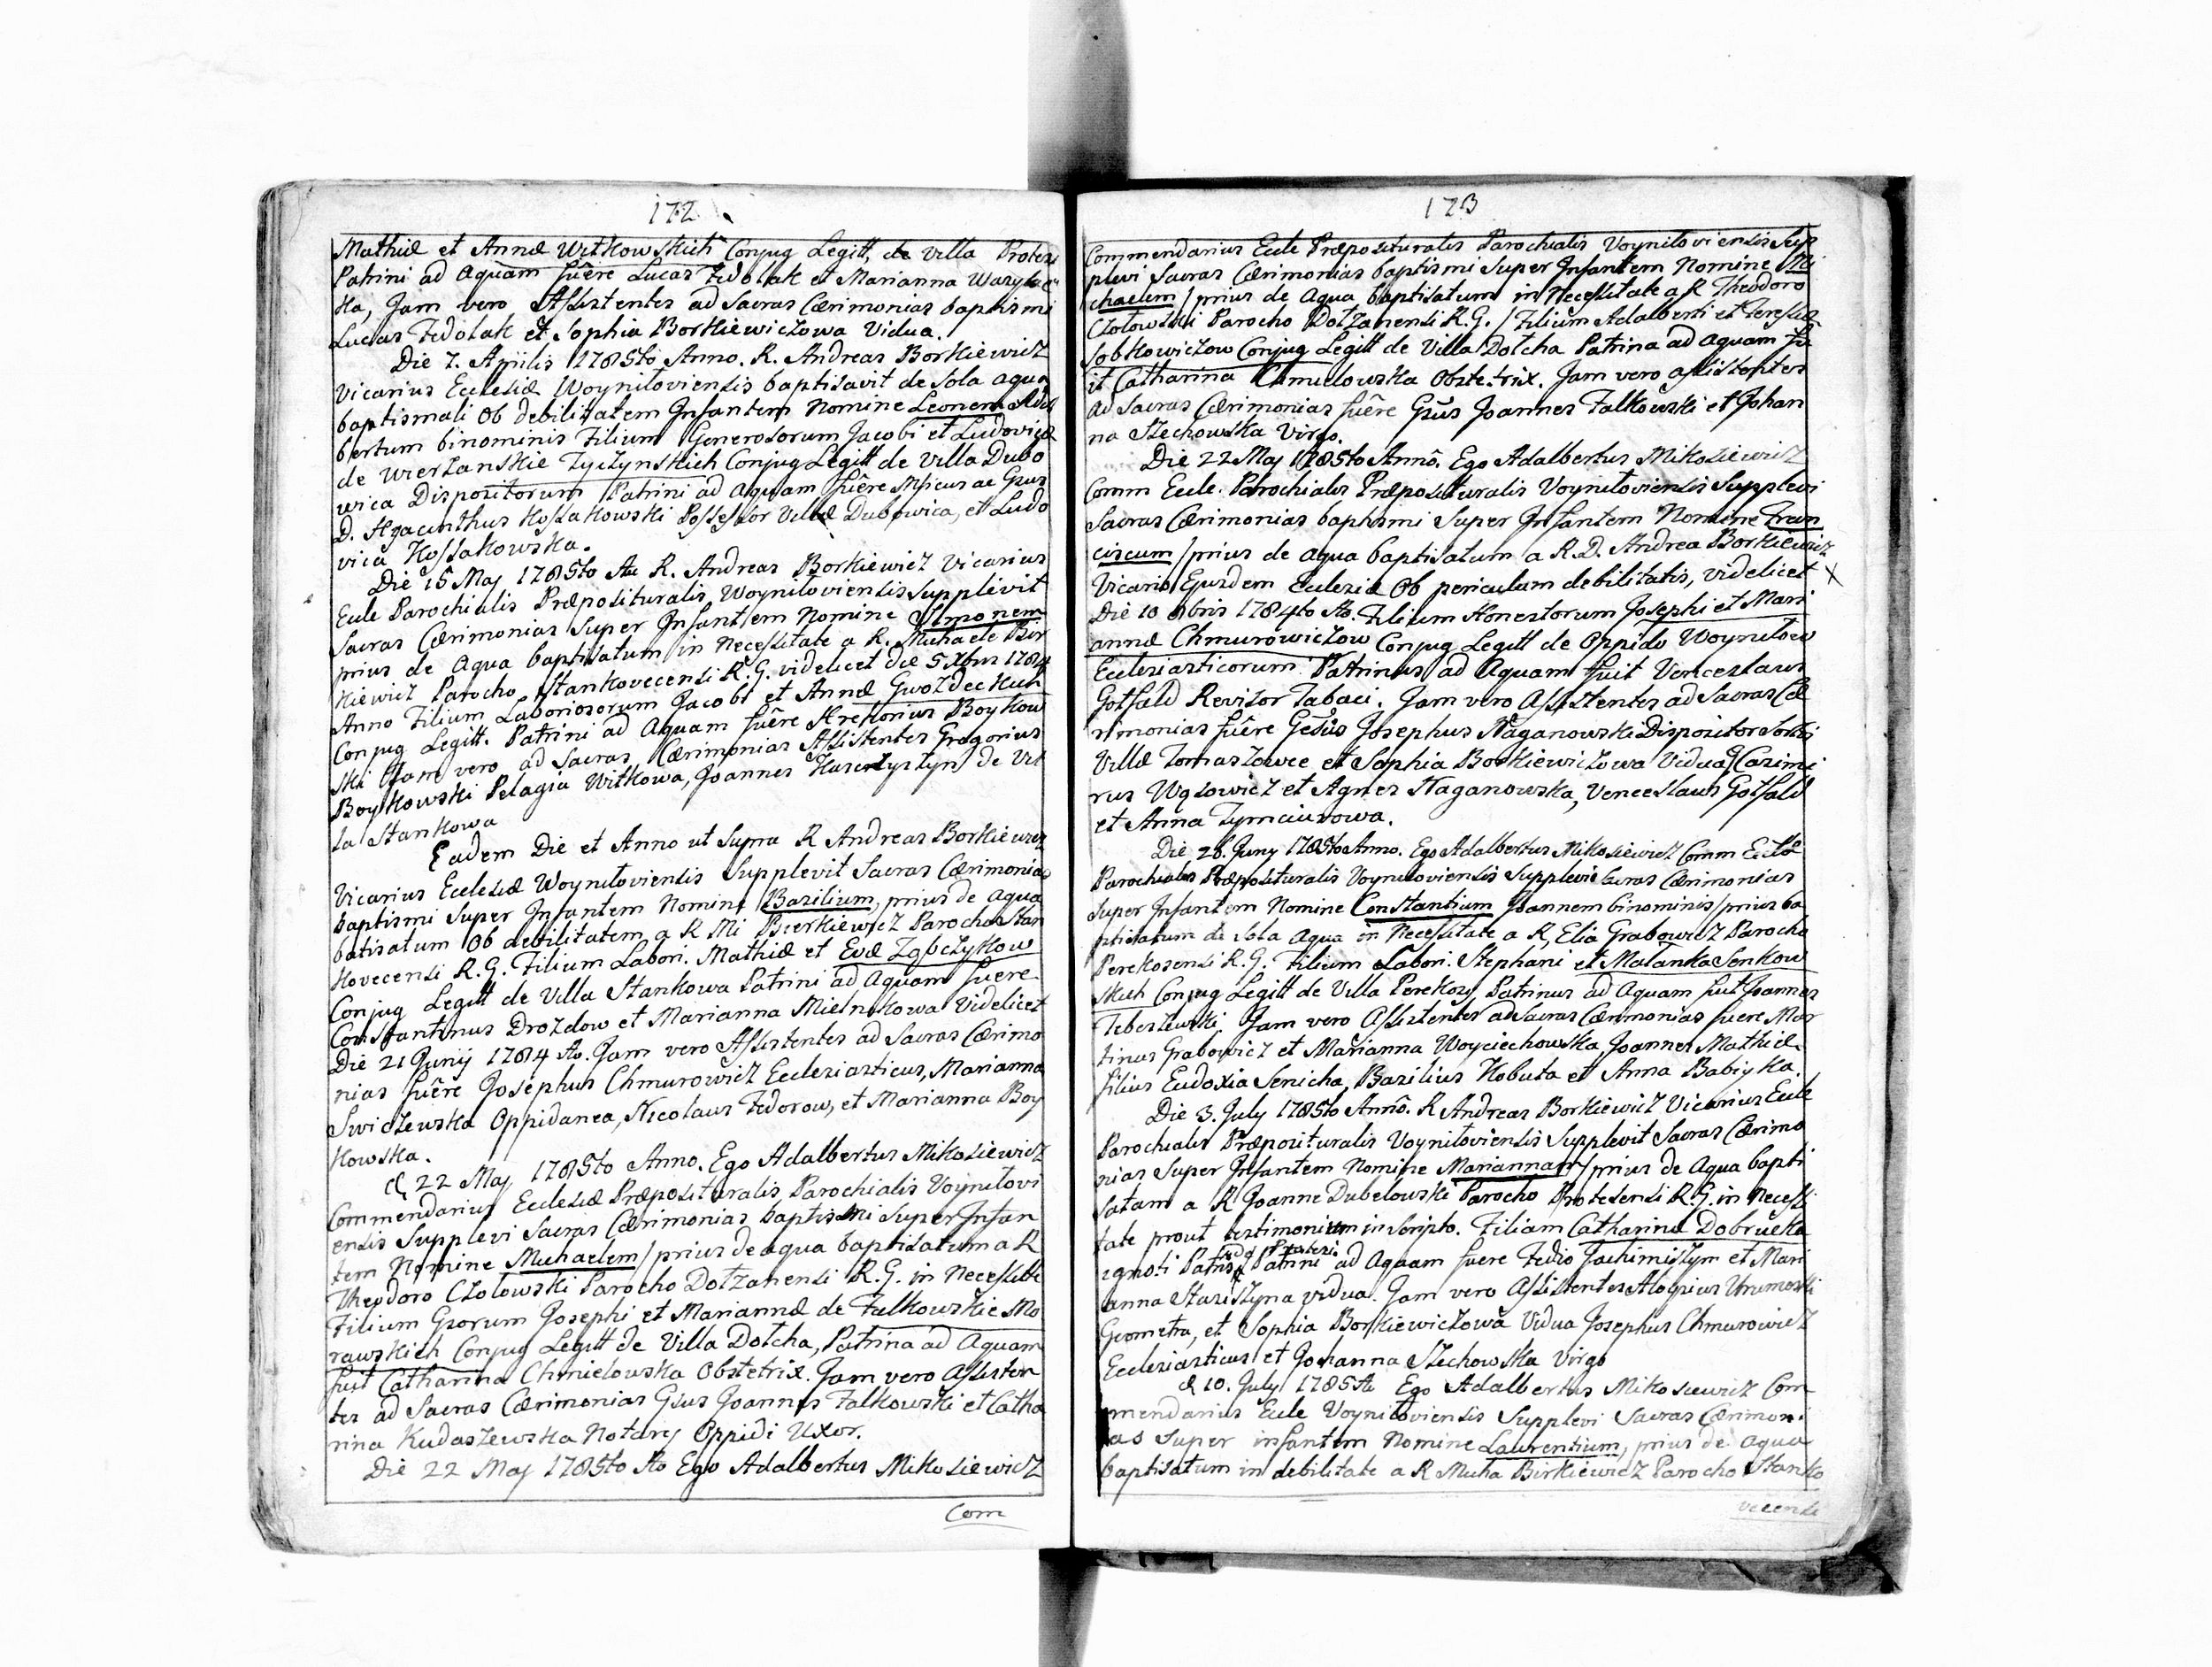 172
Mathiæ et Annæ Witkowskich Conjug Legitt, de Villa Protesi
Patrini ad Aquam fuêre Lucas Fedolak et Marianna
ka, Jam vero Assistentes ad Sacras Cærimonias baptismi
Lucas Fedolak et Sophia Borkiewiczowa Vidua.
Die 7. Aprilis 1785to Anno. R. Andreas Borkiewicz
Vicarius Ecclesiæ Woyniloviensis baptisavit de Sola aqua
baptismali Ob debilitatem Infantem Nomine Leonem Adal
bertum binominis Filium Generosorum Jacobi et Ludovicæ
de Wierzanskie Zyczynskich Conjug Legitt de Villa Dubo
wica Dispositorum Patrini ad Aquam fuêre Mficus ac Gsus
D. Hyacinthus Kossakowski Possessor Villæ Dubowica, et Ludo
vica Kossakowska.
Die 15 Maj 1785to Ao R. Andreas Borkiewicz Vicarius
Eccle Parochialis Præpositturalis, Woyniloviensis Supplevit
Sacras Cærimonias Super Infantem Nomine Simonem
prius de Aqua baptisatum in Necessitate a R. Michaele Bir
kiewicz Parocho Stankovecensi R.G. videlicet die 5 Xbris 1784
Anno Filium Laboriosorum Jacobi et Annæ Gwozdeckich
Conjug Legitt. Patrini ad Aquam fuêre Hrehorius Boykow
ski Jam vero ad Sacras Cærimonias Assistentes Gregorius
Boykowski Pelagia Witkowa, Joannes de Vil
la Stankowa
Eadem Die et Anno ut Supra R Andreas Borkiewicz
Vicarius Ecclesiæ Woyniloviensis Supplevit Sacras Cærimonias
baptismi Super Infantem Nomine Basilium, prius de aqua
batisatum Ob debilitatem a R Mi Bierkiewicz Parocho Stan
kovecensi R.G. Filium Labori. Mathiæ et Evæ Zabczykow
Conjug Legitt de Villa Stankowa Patrini ad Aquam fuere
Constantinus Drozdow et Marianna Mielnikowa Videlicet
Die 21 Junij 1784 Ao. Jam vero Assistentes ad Sacras Cærimo
nias fuêre Josephus Chmurowicz Ecclesiasticus, Marianna
Swiczewska Oppidanea, Nicolaus Fedorow, et Marianna Boy
kowska.
D 22 Maj 1785to Anno. Ego Adalbertus Mikosiewicz
Commendarius Ecclesiæ Præposituralis Parochialis Voynilovi
ensis Supplevi Sacras Cærimonias baptismi Super Infan
tem Nomine Michaelem / prius de aqua baptisatum a R
Theodoro Czolowski Parocho Dolzanensi R.G. in Necessitte
Filium Gsorum Josephi et Mariannæ de Falkowskie Mo
rawskich Conjug Legitt de Villa Dolcha, Patrina ad Aquam
fuit Catharina Chmielowska Obstetrix. Jam vero Assisten
tes ad Sacras Cærimonias Gsus Joannes Falkowski et Catha
rina Kudaszewska Notarij Oppidi Uxor.
Die 22 Maj 1785to Ao Ego Adalbertus Mikosiewicz
Com
173
Commendarius Eccle Præposituralis Parochialis Voyniloviensis Sup
plevi Sacras Cærimonias baptismi Super Infantem Nomine Mi
chaelem / prius de Aqua baptisatum in Necessitate a R Theodoro
Czolowski Parocho Dolzanensi R.G. / Filium Adalberti et Teresiæ
Sobkowiczow Conjug Legitt de Villa Dolcha Patrina ad Aquam fu
it Catharina Chmielowska Obstetrix. Jam vero assistentes
ad Sacras Cærimonias fuêre Gsus Joannes Falkowski et Johan
na Stechowska Virgo.
Die 22 Maj 1785to Anno. Ego Adalbertus Mikosiewicz
Comm Eccle. Parochialis Præposituralis Voyniloviensis Supplevi
Sacras Cærimonias baptismi Super Infantem Nomine Fran
ciscum / prius de Aqua baptisatum a R.D. Andrea Borkiewicz
Vicario Ejusdem Ecclesiæ Ob periculum debilitatis, videlicet X
Die 10 8bris 1784to Ao. Filium Honestorum Josephi et Mari
annæ Chmurowiczow Conjug Legitt de Oppido Woynilow
Ecclesiasticorum Patrinus ad Aquam fuit Venceslaus
Gotfald Revisor Tabaci. Jam vero Assistentes ad Sacras Cæ
rimonias fuêre Gesus Josephus Naganowski Dispositor
Villæ Tomaszowce et Sophia Borkiewiczowa Vidua, Casimi
rus Wąsowicz et Agnes Naganowska, Venceslaus Gotfald
et Anna Zymciurowa.
Die 26. Juny 1785to Anno. Ego Adalbertus Mikosiewicz Comm Eccle
Parochialis Præposituralis Voyniloviensis Supplevi Sacras Cærimonias
Super Infantem Nomine Constantium Joannem binominis / prius ba
ptisatum de Sola Aqua in Necessitate a R, Elia Grabowicz Parocho
Perekosensi R.G. Filium Labori. Stephani et Malanka Senkow
skich Conjug Legitt de Villa Perekosy, Patrinus ad Aquam fuit Joannes
Teberzewski. Jam vero Assistentes ad Sacras Cærimonias fuere Mar
tinus Grabowicz et Marianna Woyciechowska Joannes Mathiæ
filius Eudoxia Senicha, Basilius Kobuta et Anna Babiyka.
Die 3. July 1785to Anno. R Andreas Borkiewicz Vicarius Eccle
Parochialis Præposituralis Voyniloviensis Supplevit Sacras Cærimo
nias Super Infantem Nomine Mariannam / prius de Aqua bapti
satam a R Joanne Dubelowski Parocho Protesensi R.G. in Necessi
tate prout testimonium in Scripto. Filiam Catharinæ Dobrucka
ignoti Patris Patrini ad Aquam fuere Fedio Jachimiszyn et Mari
anna Stasiszyna vidua. Jam vero Assistentes Aloysius
Geometra, et Sophia Borkiewiczowa Vidua Josephus Chmurowicz
Ecclesiasticus et Johanna Stechowska Virgo
d 10. July 1785 Ao Ego Adalbertus Mikosiewicz Com
mendarius Eccle Voyniloviensis Supplevi Sacras Cærimoni
as Super infantem Nomine Laurentium, prius de aqua
baptisatum in debilitate a R Micha Birkiewicz Parocho Stanko
vecensi